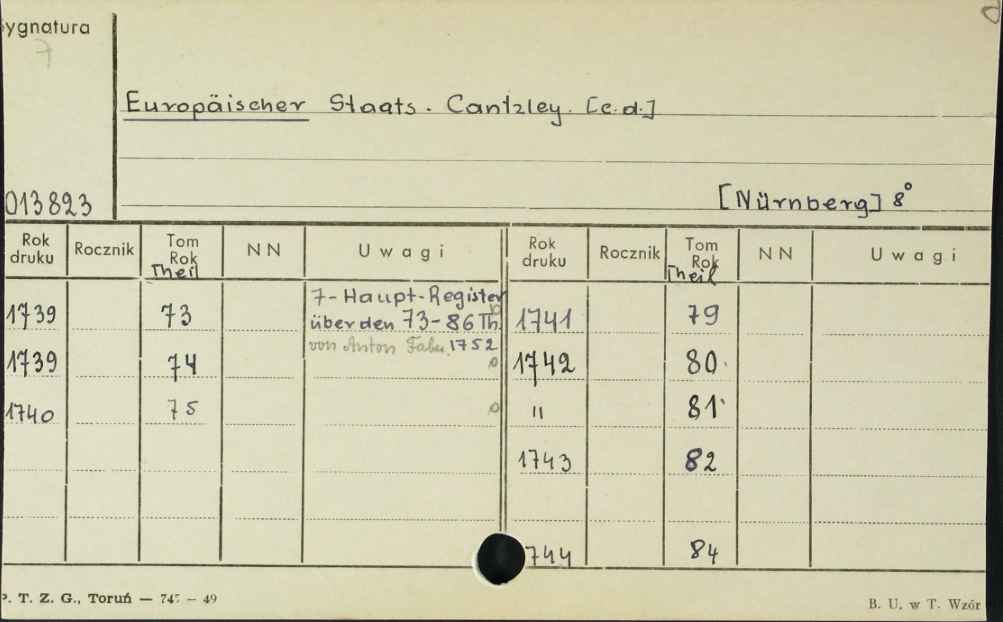 ygnatura
7
Europäischer Staats. Cantzley. [c.d.]
013823
[Nürnberg] 8°
Rok druku Rocznik Tom Rok Theil NN Uwagi Rok druku Rocznik Tom Rok Theil NN Uwagi
1739 73 7-Haupt-Register 1741 79
über den 73-86 Th.
von Anton Faber 1752
1739 74 1742 80
1740 75 " 81
1743 82
744 84
P. T. Z. G., Toruń — 745 — 49 B. U. w T. Wzór